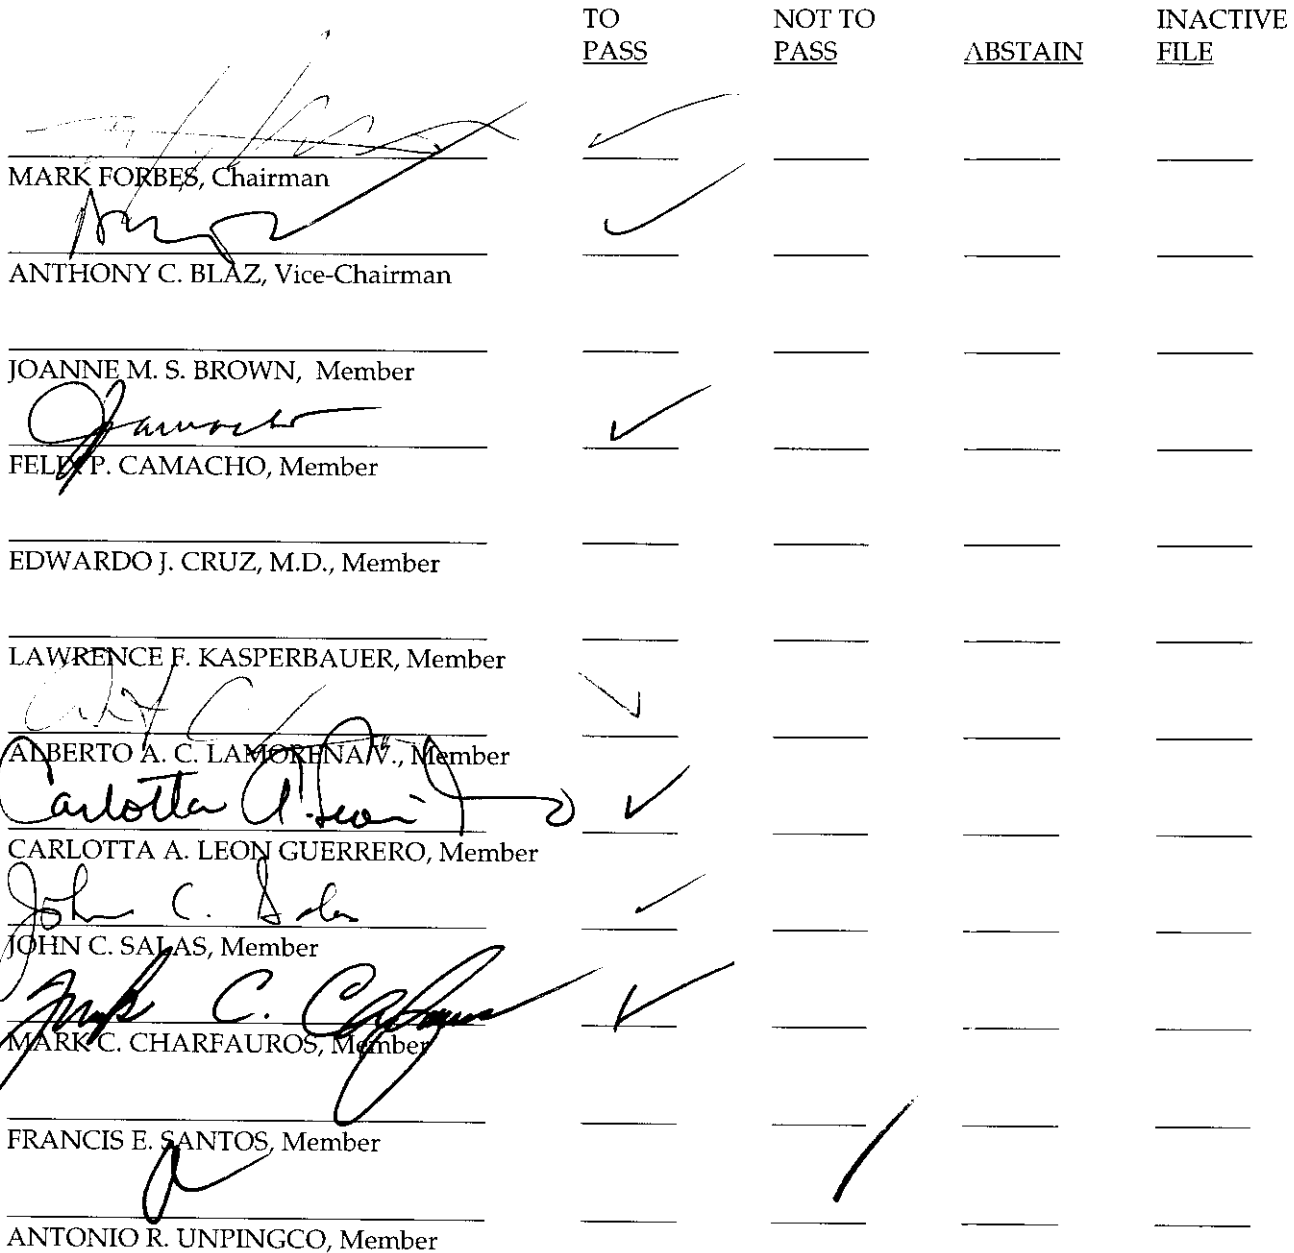 TO PASS NOT TO PASS ABSTAIN INACTIVE FILE
MARK FORBES, Chairman
ANTHONY C. BLAZ, Vice-Chairman
JOANNE M. S. BROWN, Member
FELIX P. CAMACHO, Member
EDWARDO J. CRUZ, M.D., Member
LAWRENCE F. KASPERBAUER, Member
ALBERTO A. C. LAMORENA V., Member
Carlotta A. Leon
CARLOTTA A. LEON GUERRERO, Member
John C. Salas
JOHN C. SALAS, Member
MARK C. CHARFAUROS, Member
FRANCIS E. SANTOS, Member
ANTONIO R. UNPINGCO, Member